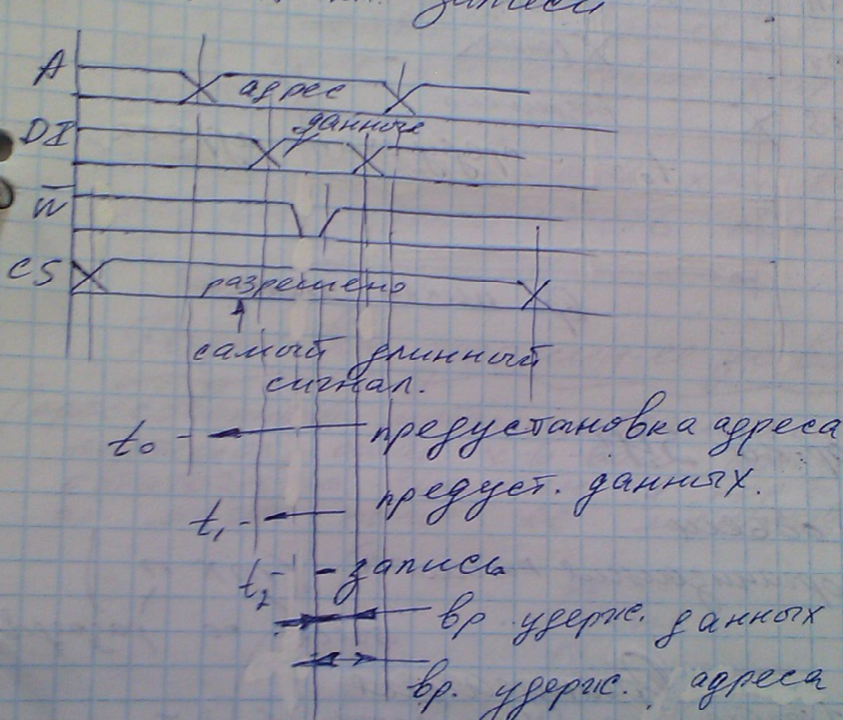 записи
A адрес
DI данные
W̅
CS разрешено
самый длинный
сигнал.
t₀ - предустановка адреса
t₁ - предуст. данных.
t₂ - запись
вр удерж. данных
вр. удерж. адреса